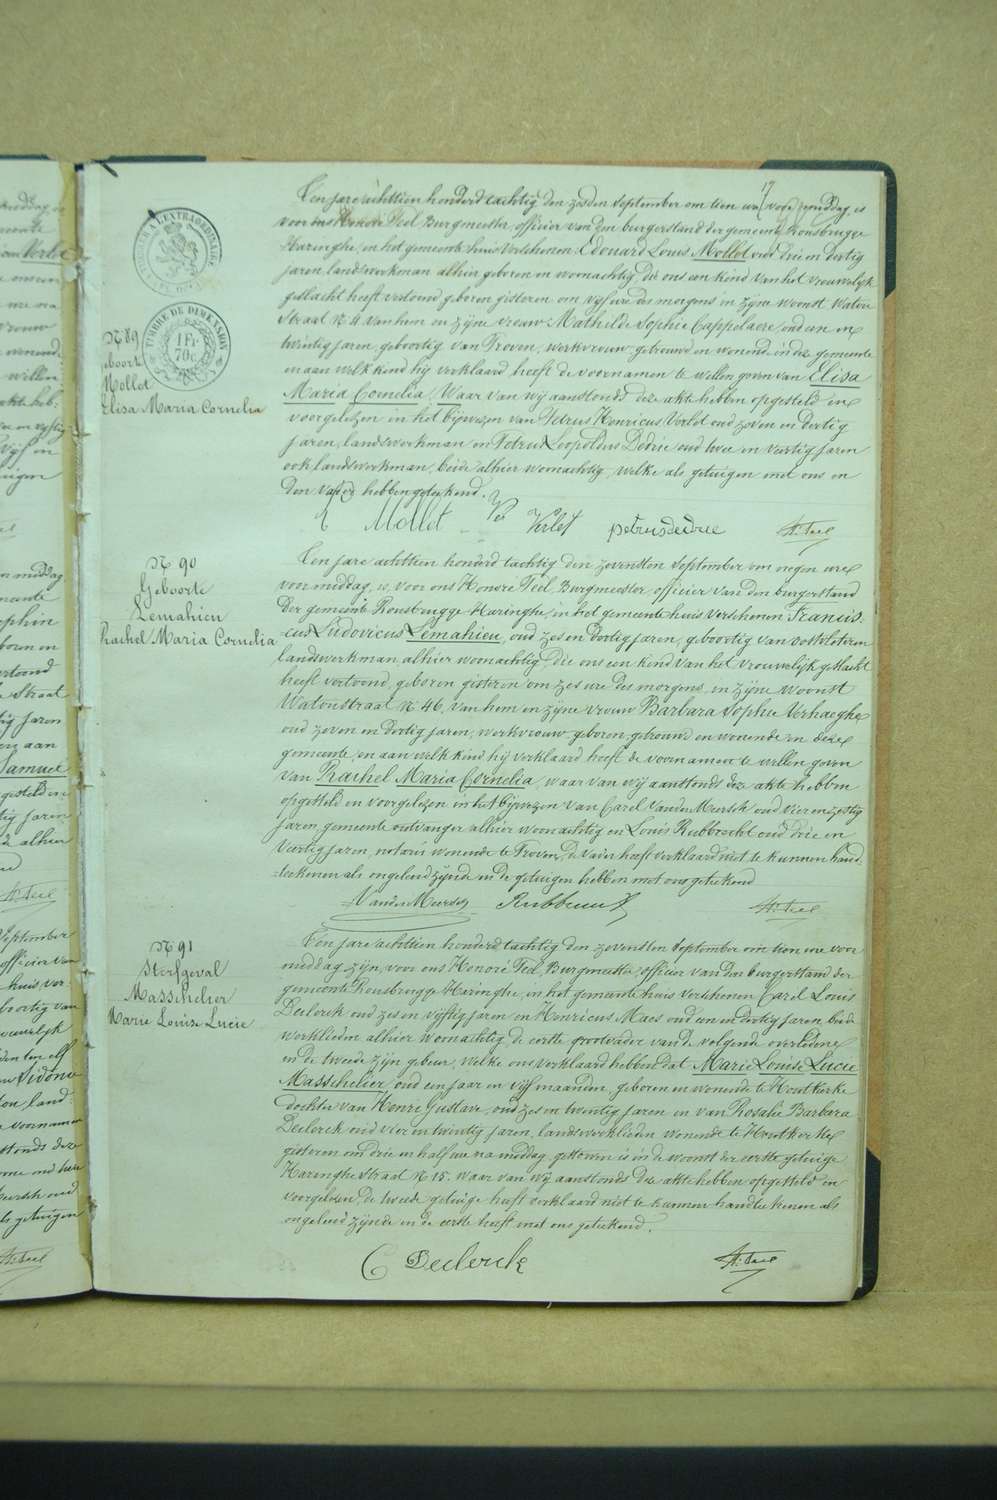 17
Ten jare achttien honderd tachtig den zesden September om tien ure voor middag, is
voor ons Honoré Teel Burgmeester, officier van den burgerstand der gemeente Rousbrugge
Haringhe, in het gemeente huis verschenen Edouard Louis Mollet oud drie en dertig
jaren, landswerkman alhier geboren en woonachtig die ons een kind van het vrouwelijk
geslacht heeft vertoond, geboren gisteren om vijf ure des morgens in zijne woonst Watou
Straat N 4 van hem en zijne vrouw Mathilde Sophie Cappelaere, oud een en
twintig jaren, geboortig van Proven, werkvrouw getrouwd en wonende in deze gemeente
en aan welk kind hij verklaard heeft de voornamen te willen geven van Elisa
Maria Cornelia. Waar van wij aanstonds deze akte hebben opgesteld en
voorgelezen in het bijwezen van Petrus Henricus Verlet oud zeven en dertig
jaren, landswerkman en Petrus Leopoldus Dedrie oud twee en veertig jaren
ook landswerkman, beide alhier woonachtig, welke als getuigen met ons en
den vader hebben geteekend.
N 89
Geboorte
Mollet
Elisa Maria Cornelia
TIMBRE DE DIMENSION
1 Fr
70 c.
Mollet Verlet petrus dedrie H. Teel
N 90
Geboorte
Lemahieu
Rachel Maria Cornelia
Ten jare achttien honderd tachtig den zevensten September om negen ure
voor middag, is voor ons Honoré Teel, Burgmeester, officier van den burgerstand
der gemeente Rousbrugge Haringhe, in het gemeente huis verschenen Francis-
cus Ludovicus Lemahieu, oud zes en dertig jaren, geboortig van Oostvleteren
landswerkman, alhier woonachtig die ons een kind van het vrouwelijk geslacht
heeft vertoond, geboren gisteren om zes ure des morgens, in zijne woonst
Watoustraat N 46, van hem en zijne vrouw Barbara Sophie Verhaeghe
oud zeven en dertig jaren, werkvrouw geboren getrouwd en wonende in deze
gemeente, en aan welk kind hij verklaard heeft de voornamen te willen geven
van Rachel Maria Cornelia, waar van wij aanstonds deze akte hebben
opgesteld en voorgelezen in het bijwezen van Carel Vander Meersch oud vier en zestig
jaren, gemeente ontvanger alhier woonachtig en Louis Rubbrecht oud drie en
veertig jaren, notaris wonende te Proven, de vader heeft verklaard niet te kunnen hand-
teekenen als ongeleerd zijnde en de getuigen hebben met ons geteekend
Vander Meersch Rubbrecht H. Teel
N 91
Sterfgeval
Masschelier
Marie Louise Lucie
Ten jare achttien honderd tachtig den zevensten September om tien ure voor
middag zijn, voor ons Honoré Teel, Burgmeester, officier van den burgerstand der
gemeente Rousbrugge Haringhe, in het gemeente huis verschenen Carel Louis
Declerck oud zes en vijftig jaren en Henricus Maes oud een en dertig jaren, beide
werklieden alhier woonachtig, de eerste grootvader van de volgende overledene
en de tweede zijn gebuur, welke ons verklaard hebben dat Marie Louise Lucie
Masschelier, oud een jaar en vijf maanden, geboren en wonende te Houtkerke
dochter van Henri Gustave, oud zes en twintig jaren en van Rosalie Barbara
Declerck oud vier en twintig jaren, landswerklieden wonende te Houtkerke
gisteren om drie en half ure na middag, gestorven is in de woonst der eerste getuige
Haringhe straat N 15. waar van wij aanstonds deze akte hebben opgesteld en
voorgelezen de tweede getuige heeft verklaard niet te kunnen handteekenen als
ongeleerd zijnde en de eerste heeft met ons geteekend.
C Declerck H. Teel